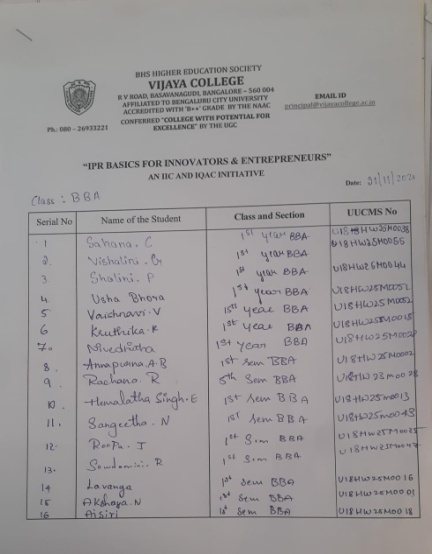 BHS HIGHER EDUCATION SOCIETY
VIJAYA COLLEGE
R V ROAD, BASAVANAGUDI, BANGALORE - 560 004
AFFILIATED TO BENGALURU CITY UNIVERSITY
ACCREDITED WITH "B++" GRADE BY THE NAAC
CONFERRED "COLLEGE WITH POTENTIAL FOR
EXCELLENCE" BY THE UGC
EMAIL ID
principal@vijayacollege.ac.in
Ph.: 080 - 26933221
"IPR BASICS FOR INNOVATORS & ENTREPRENEURS"
AN IIC AND IQAC INITIATIVE
Date:
Class : BBA
Serial No Name of the Student Class and Section UUCMS No
1 Sahana. C 1st year BBA
2. Vishalini. G 1st year BBA U18HW25M0055
3 Shalini. P 1st year BBA U18HW25M0044
4. Usha Bhora 1st year BBA
5 Vaishnavi. V 1st year BBA U18HW25M0052
6 Kruthika. R 1st year BBA
7. Nivedistha 1st year BBA
8. Annapurna. A. B 1st sem BBA U18HW25M0002
9. Rachana. R 5th Sem BBA U18HW23M0028
10. Hemalatha Singh. E 1st sem BBA U18HW25m0013
11. Sangeetha. N 1st sem BBA U18HW25m0043
12. Roopa. J 1st Sem BBA
13. Sowdamini. R 1st Sem BBA
14 Lavanya 1st sem BBA U18HW25M0016
15 Akshaya. N 1st sem BBA U18HW25M0001
16 Aisiri 1st sem BBA U18HW25M0018